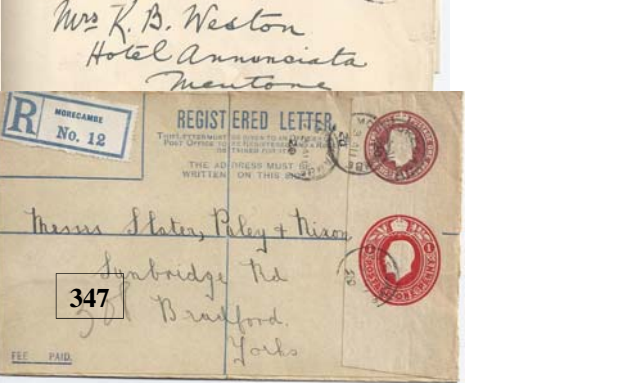 Mrs K. B. Weston
Hotel Annonciata
Mentone
R
MORECAMBE
No. 12
REGISTERED LETTER
THE ADDRESS MUST BE
WRITTEN ON THIS SIDE
Messrs Slater, Paley & Nixon
Sunbridge Rd
347
Bradford.
Yorks
FEE PAID.